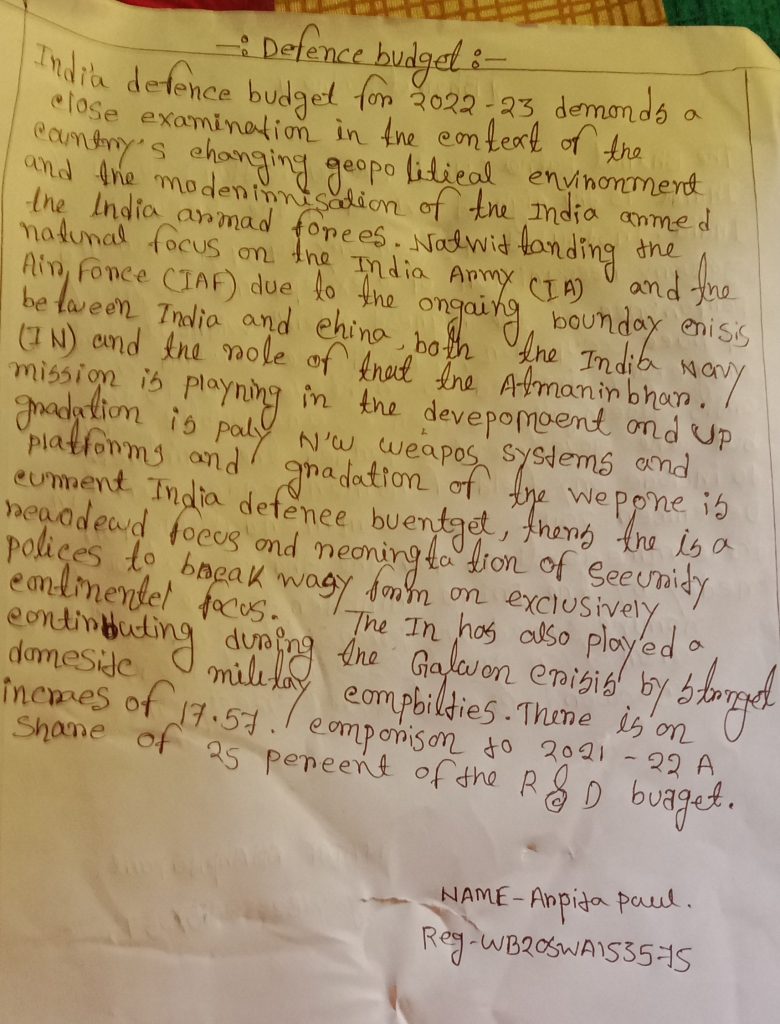 -: Defence budget :-
India defence budget for 2022-23 demonds a
close examination in the context of the
country's changing geopolitical environment
and the moderinnisation of the India armed
the India armad forces. Natwistanding the
natural focus on the India Army (IA) and the
Air, Force (IAF) due to the ongaing bounday crisis
between India and china, both the India Navy
(IN) and the role of that the Atmanirbhar.
mission is playning in the devepomaent and Up
gradation is paly N'w weapos systems and
platforms and gradation of the wepone is
current India defence buentget, thers the is a
focus ond of Security
polices to break wagy form on exclusively
continentel focus. The In has also played a
contributing during the Galwon crisis by
domesitc militay compbilties. There is on
incraes of 17.57. / comporison to 2021-22 A
Share of 25 perceent of the R & D buaget.
NAME - Arpita paul.
Reg - WB20SWA153575